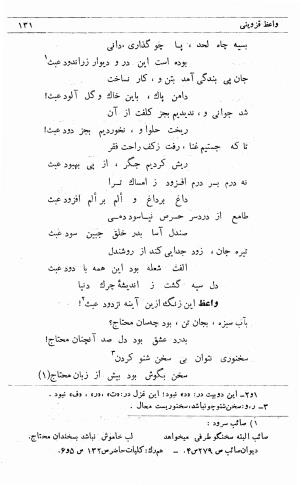 واعظ قزوینی
۱۳۱
بسیه چاه لحد، پا چو گذاری، دانی
بوده است این در و دیوار زراندود عبث¹
جان پی بندگی آمد بتن و، کار نساخت
دامن پاک، باین خاک و گل آلود عبث!
شد جوانی و، ندیدیم بجز کلفت از آن
ریخت حلوا و، نخوردیم بجز دود عبث!
تا که جستیم غنا، رفت زکف راحت فقر
ریش کردیم جگر، از پی بهبود عبث
نه درم بسر درم افزود ز امساک ترا
داغ برداغ و الم بر الم افزود عبث
طامع از دردسر حرص نیاسود دمی
صندل آسا بدر خلق جبین سود عبث
تیره جان، زود جدایی کند از روشندل
الفت شعله بود این همه با دود عبث
دل سیه گشت ز اندیشهٔ چرک دنیا
واعظ این زنگ ازین آینه نزدود عبث²!
بآب سبزه، بجان تن، بود چسان محتاج؟
بدرد عشق بود دل صد آنچنان محتاج!
سخنوری نتوان بی سخن شنو کردن³
سخن بگوش بود بیش از زبان محتاج(۱)
۱و۲ـ این دوبیت در: «د» نبود! این غزل در: «ت»، «ر»، «ف» نبود.
۳ـ ر، و: سخن‌شنو چو نباشد، سخنوریست محال.
۱) صائب سرود:
صائب البته سخنگو طرفی میخواهد
لب خاموش نباشد بسخندان محتاج.
دیوان صائب ص ۲۷۹ س ۴. ـ هم رک: کلیات حاضر ص ۱۳۲ س ۵ و ۶.